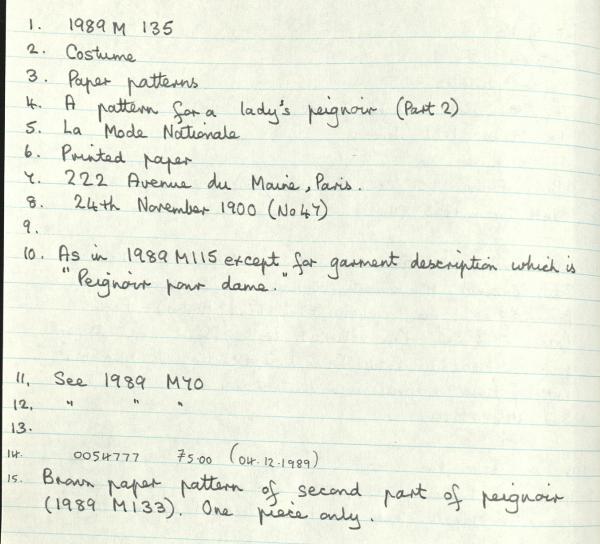 1. 1989 M 135
2. Costume
3. Paper patterns
4. A pattern for a lady's peignoir (Part 2)
5. La Mode Nationale
6. Printed paper
7. 222 Avenue du Maine, Paris.
8. 24th November 1900 (No 47)
9.
10. As in 1989 M115 except for garment description which is
"Peignoir pour dame."
11. See 1989 M70
12. " " "
13.
14. 0054777 75.00 (04.12.1989)
15. Brown paper pattern of second part of peignoir
(1989 M133). One piece only.